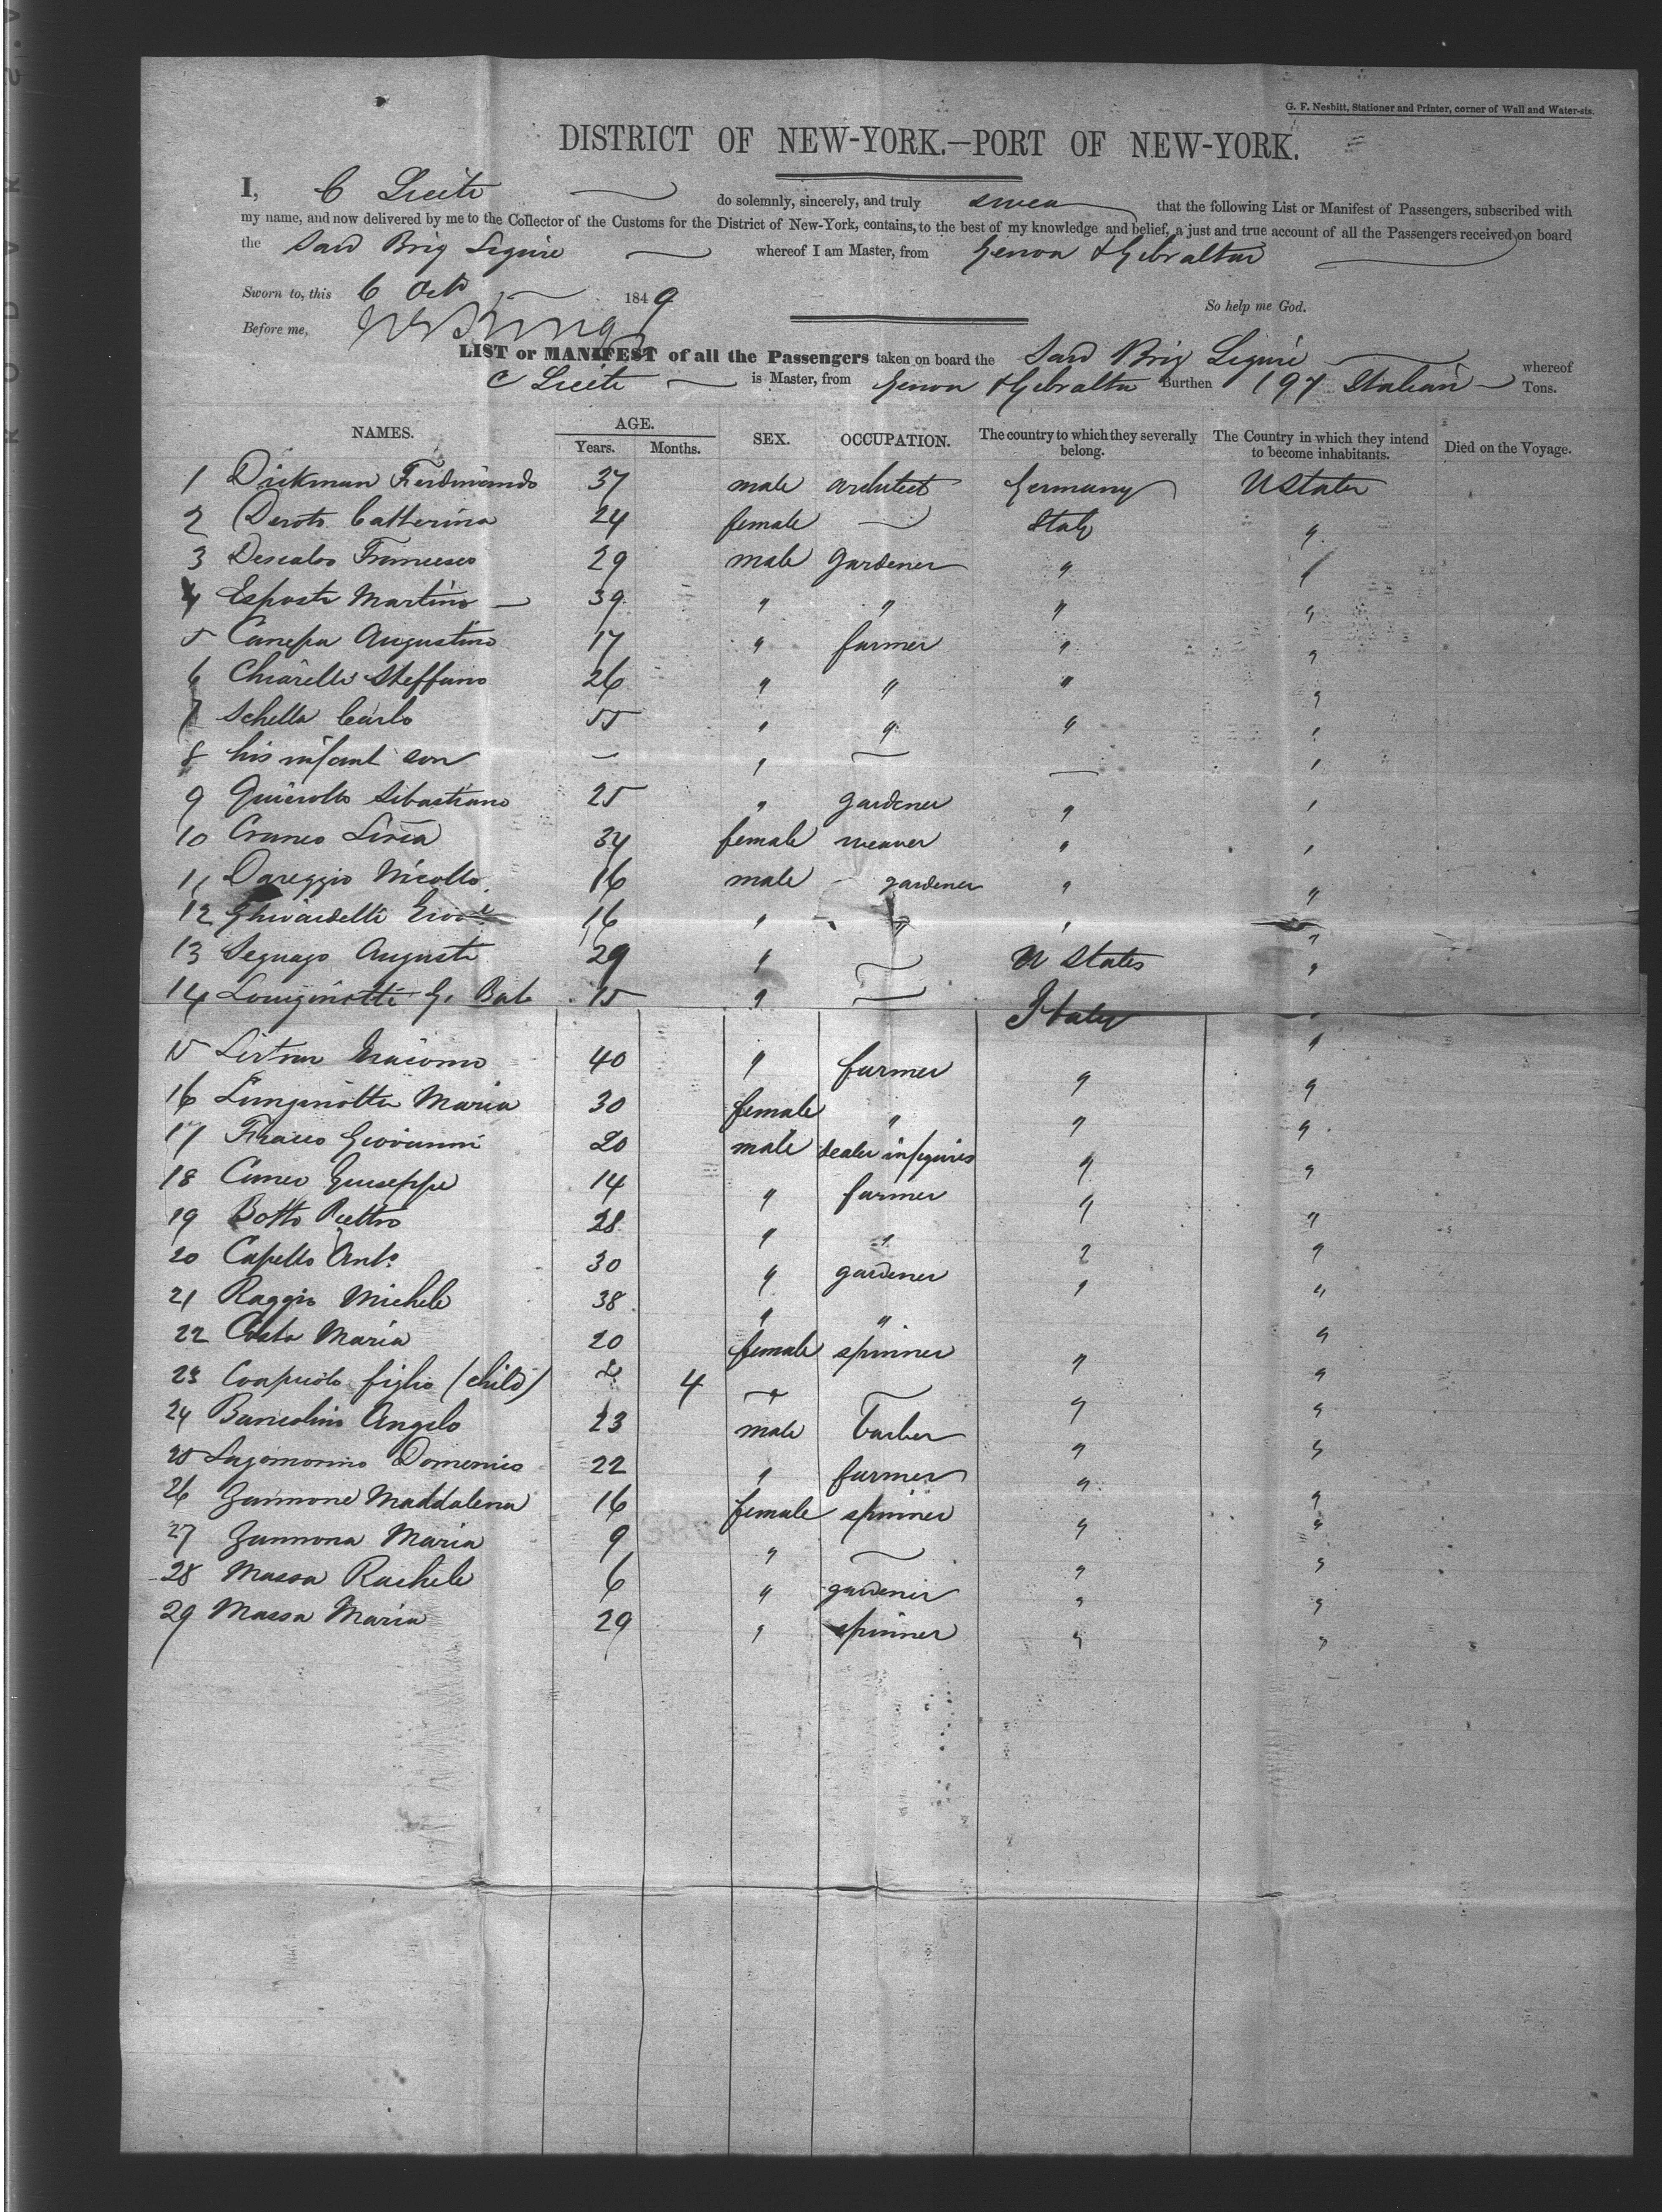 G. F. Nesbitt, Stationer and Printer, corner of Wall and Water-sts.
DISTRICT OF NEW-YORK.—PORT OF NEW-YORK.
I, C do solemnly, sincerely, and truly swear that the following List or Manifest of Passengers, subscribed with
my name, and now delivered by me to the Collector of the Customs for the District of New-York, contains, to the best of my knowledge and belief, a just and true account of all the Passengers received on board
the Sard Brig Ligure whereof I am Master, from Genoa & Gibraltar
Sworn to, this 6 Oct 1849 So help me God.
Before me,
LIST or MANIFEST of all the Passengers taken on board the Sard Brig Ligure whereof
C is Master, from Genoa & Gibralta Burthen 197 Italian Tons.
NAMES. AGE. SEX. OCCUPATION. The country to which they severally belong. The Country in which they intend to become inhabitants. Died on the Voyage.
Years. Months.
1 Dickman Ferdinando 37 male architect Germany U States
2 Deroto Catterina 24 female — Italy "
3 Descalso Francesco 29 male gardener " "
4 Esposti Martino — 39 " " " "
5 Canepa Augustino 17 " farmer " "
6 Chiarella Steffano 26 " " " "
7 Schella Carlo 55 " " " "
8 his infant son — " — — "
9 Quierollo Sibastiano 25 " gardener " "
10 Cuneo Livia 34 female weaver " "
11 Dareggio Nicollo 16 male gardener " "
12 Ghirardelli 16 " " " "
13 Segnago Augusti 29 " — U States "
14 Longinotti G. Bat 15 " — Italy "
15 Giacomo 40 " farmer " "
16 Longinotti Maria 30 female " " "
17 Giovanni 20 male dealer in figures " "
18 Cuneo Giuseppe 14 " farmer " "
19 Botto Piettro 28 " " " "
20 Capello Anto. 30 " gardener " "
21 Raggio Michele 38 " " "
22 Costa Maria 20 female spinner " "
23 figlio (child) 4 — — " "
24 Bancolino Angelo 23 male barber " "
25 Lagomorino Domenico 22 " farmer " "
26 Zannone Maddalena 16 female spinner " "
27 Zannona Maria 9 " — " "
28 Massa Rachele 6 " gardener " "
29 Massa Maria 29 " spinner " "